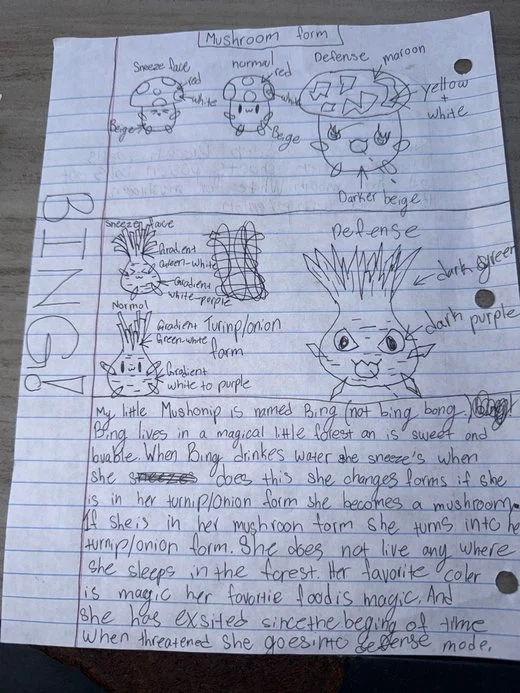 Mushroom form
Sneeze face
normal
Defense
maroon
red
white
Beige
red
white
Beige
yellow
+
white
Darker beige
BING!
Sneezen face
Gradient
Green-white
Gradient
white-purple
Normal
Gradient
Green-white
Gradient
white to purple
Turinp/onion
form
Defense
dark green
dark purple
My little Mushonip is named Bing (not bing bong-)
Bing lives in a magical little forest an is sweet and
lovable. When Bing drinkes water she sneeze's when
she does this she changes forms if she
is in her turnip/onion form she becomes a mushroom.
If she is in her mushroon form she turns into he
turnip/onion form. She does not live any where
she sleeps in the forest. Her favorite coler
is magic her favortie food is magic. And
she has exsited since the beging of time
when threatened she goes into defense mode.